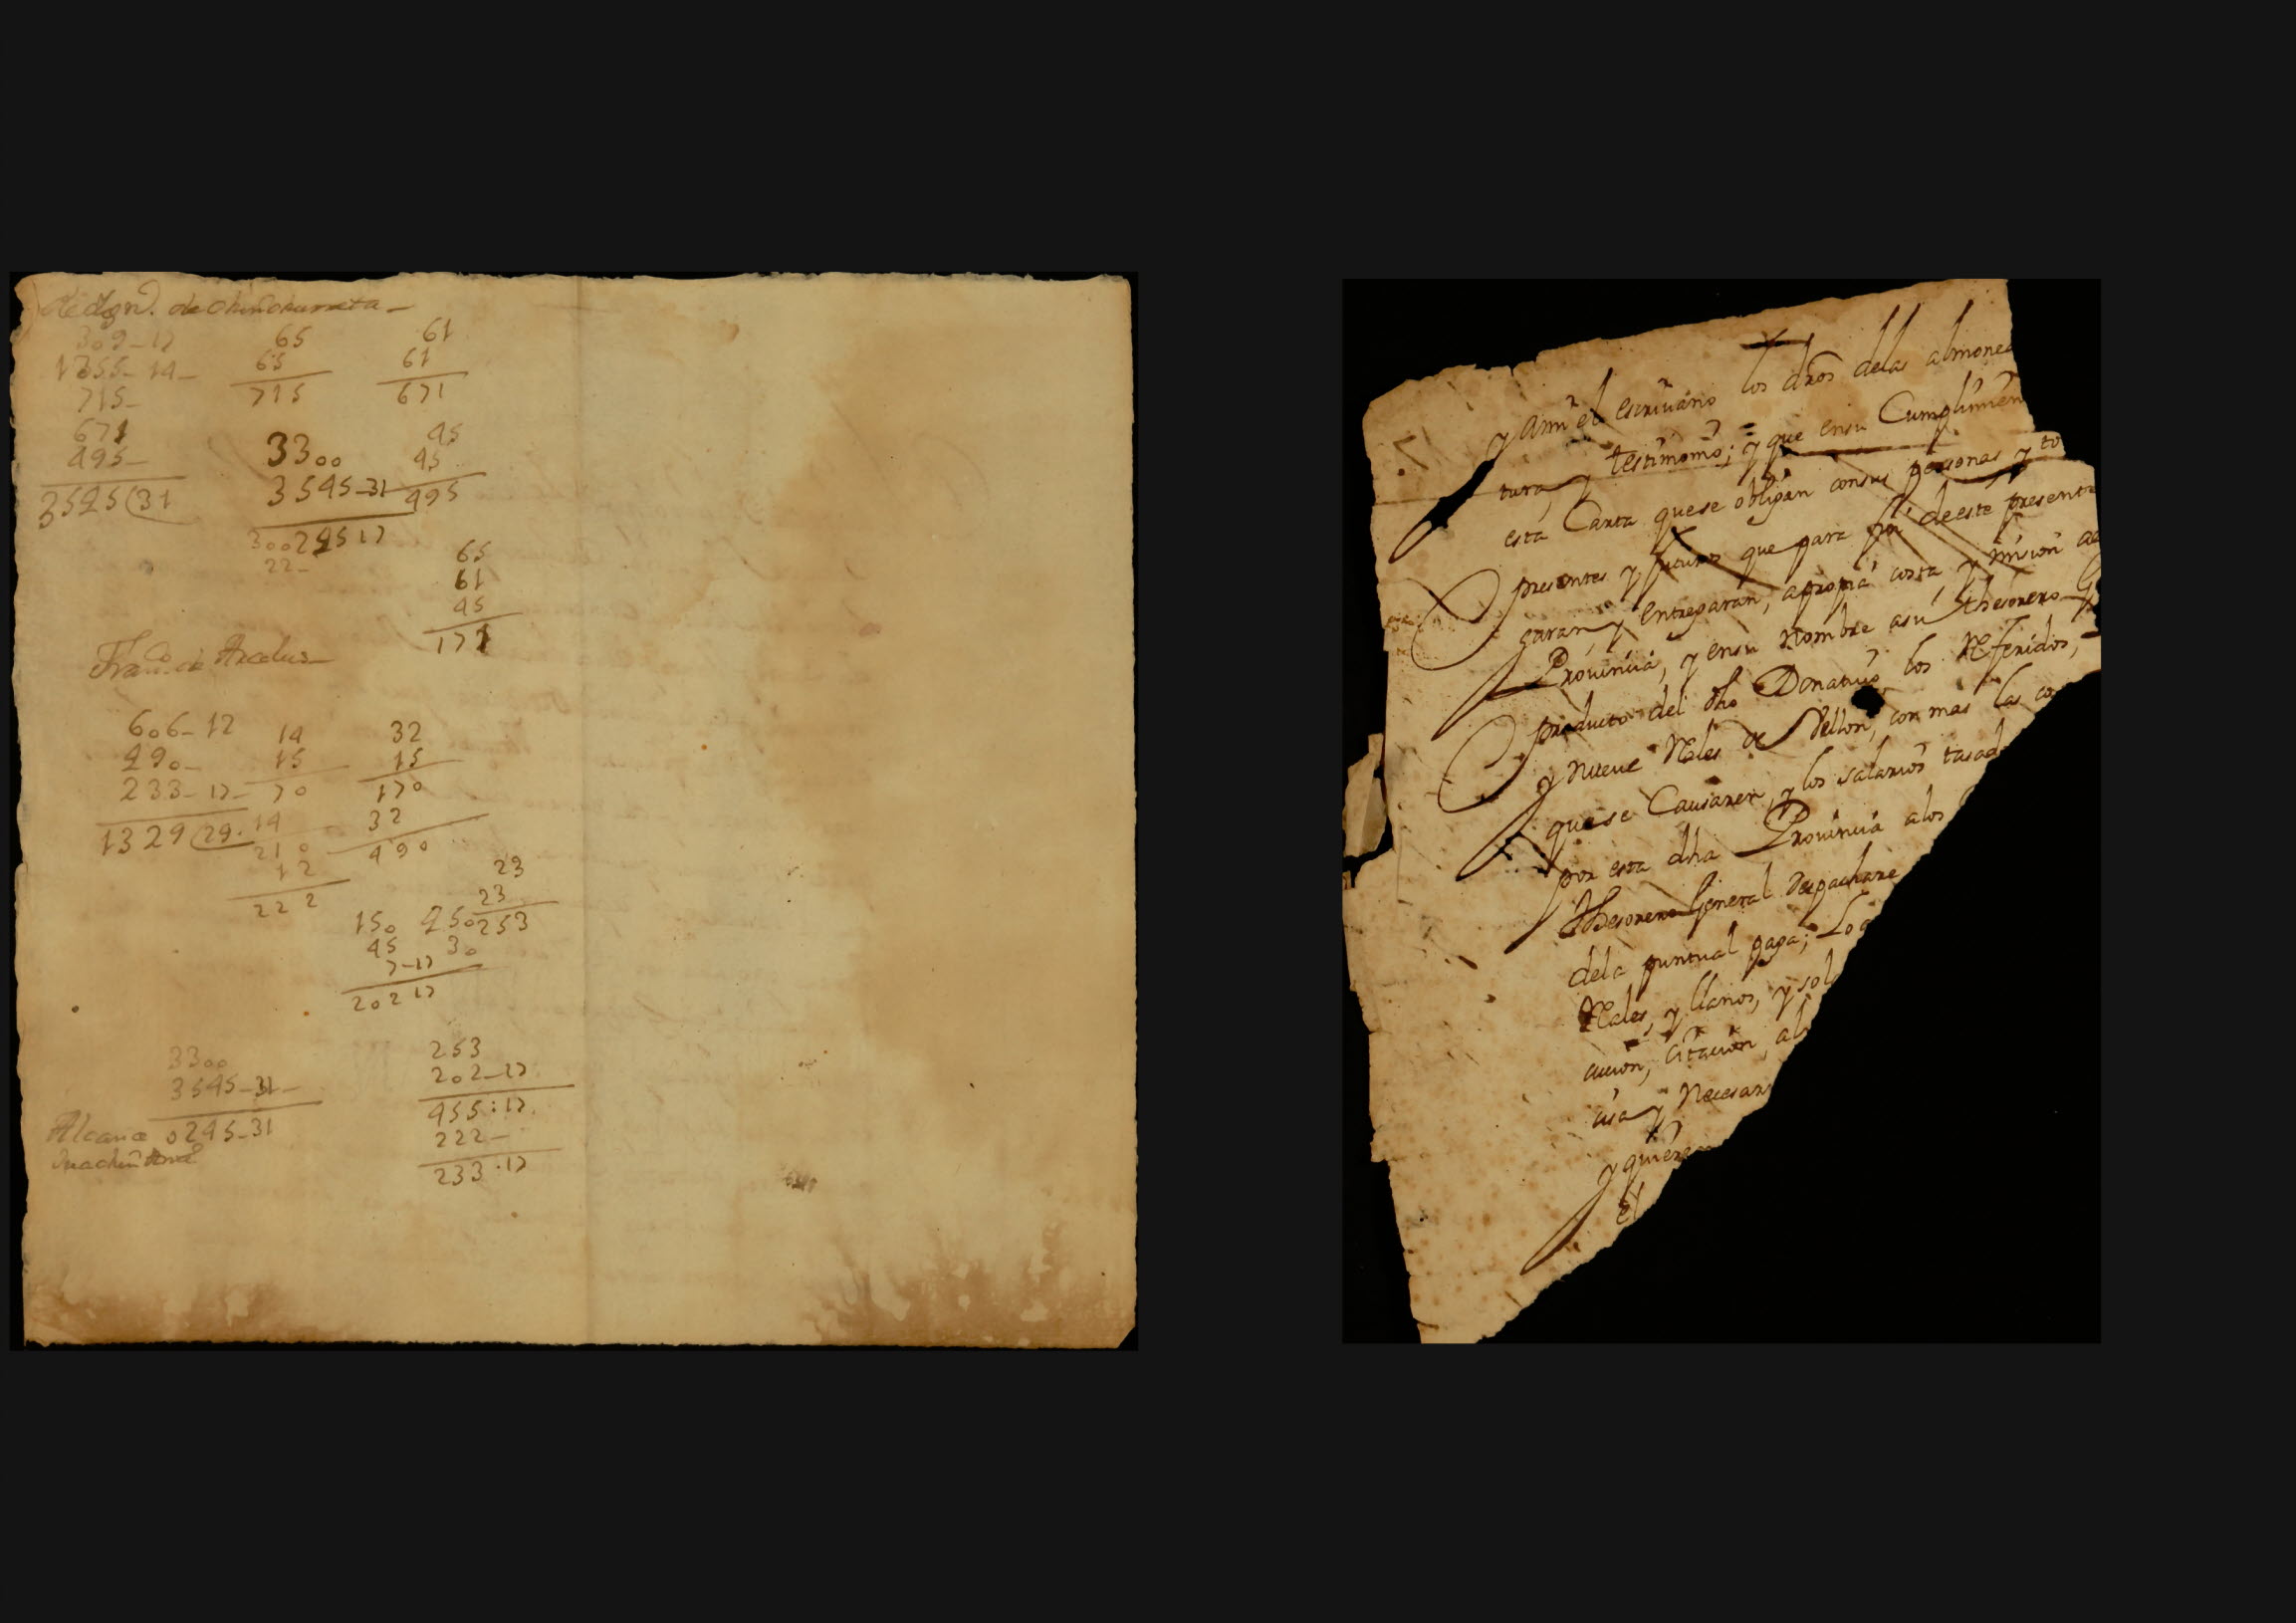 de Chinchurreta
309-17 65 61
1355-14- 65 61
715- 715 671
671 45
495- 3300 45
3545(31 3545-31 495
300245 17
22-
65
61
45
171
Fran.co de Arcelus
606-12 14 32
490- 15 15
233-17- 70 170
1329(29. 14 32
210 490
12 23
222 23
150 450 253
45 30
7-17
202 17
3300 253
3545-31- 202-17
Alcanze 0245-31 455:17
222-
233:17
y ami el escriuano los dros delas almoned
tura, y testimonio; y que ensu Cumplimien
esta Carta quese obligan consus personas y to
presentes y futuros que para fin deeste presente
garan, y entregaran, apropia costa, y mision a
Prouincia, y ensu Nombre asu thesorero G
producto del dho Donatiuo los Referidos,
y nueue Rales de Vellon, con mas las co
quese Causaren, y los salarios tasad
por esta dha Prouincia alos
Thesorero General despachare
dela puntual paga; Lo q
Rales, y llanos, y sol
cucion, citacion, al
cisa y Necesar
y quieren
el